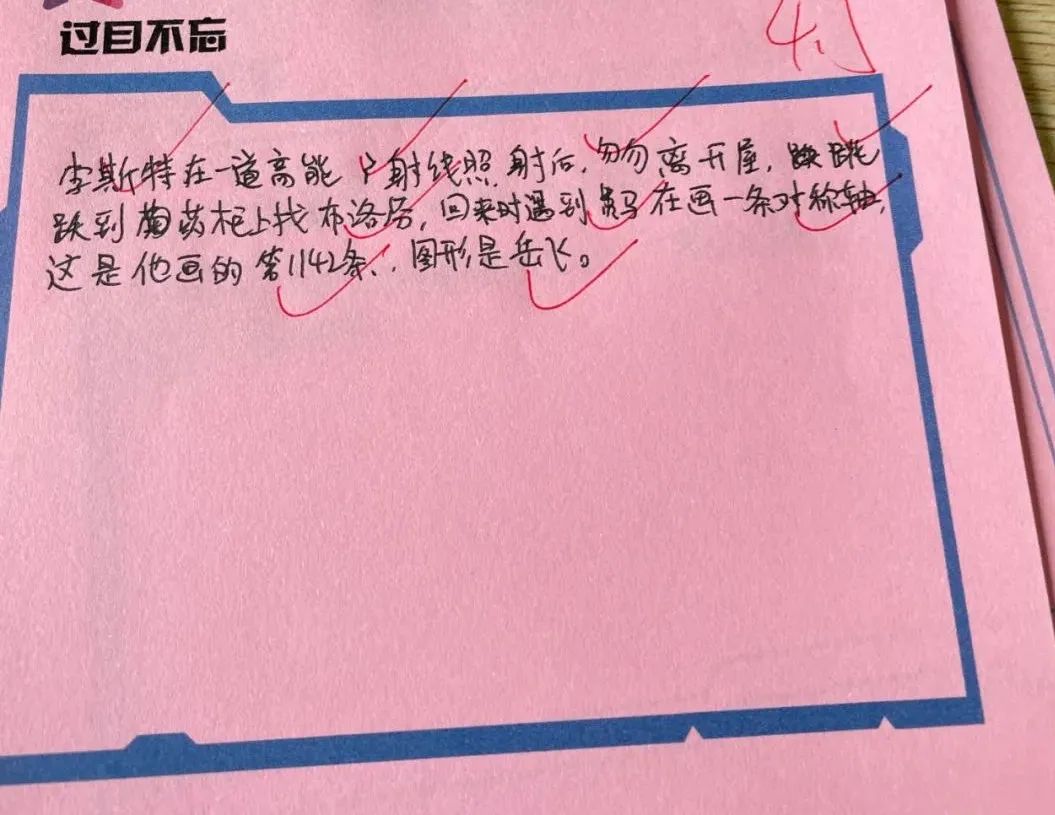 过目不忘
李斯特在一道高能γ射线照射后,匆匆离开屋,跌跳
跌到蘑菇柜上找布洛芬,回来时遇到在画一条对称轴,
这是他画的第1142条,图形是岳飞。